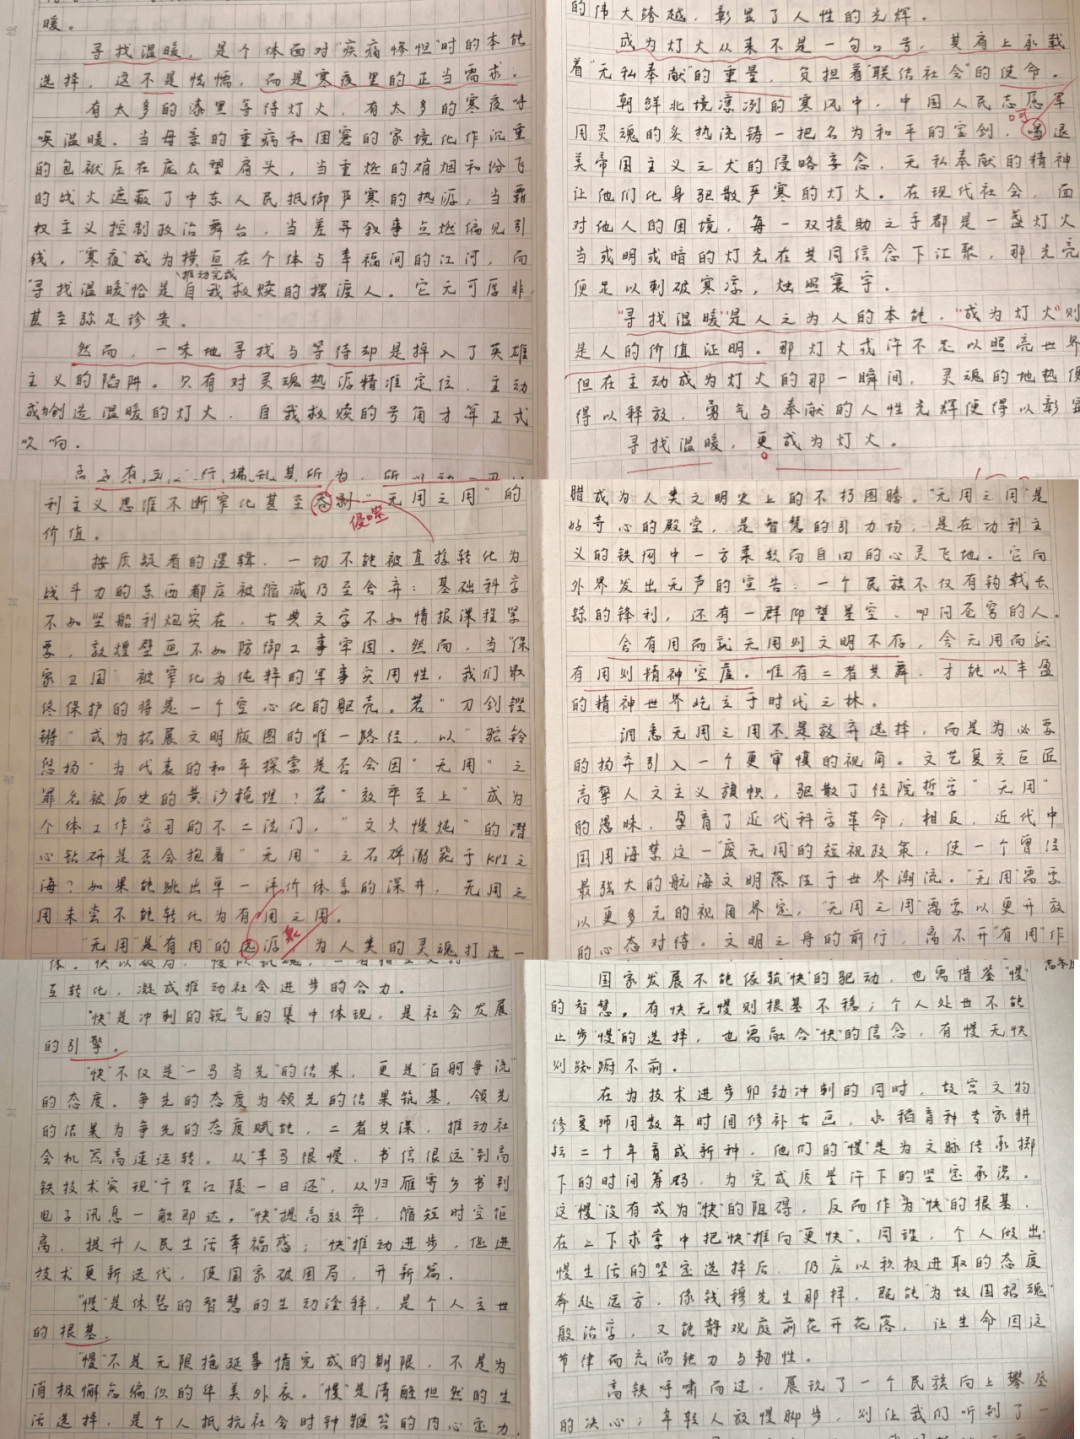 暖。
寻找温暖，是个体面对"疾痛惨怛"时的本能
选择，这不是怯懦，而是寒夜里的正当需求。
有太多的漆黑等待灯火，有太多的寒夜呼
唤温暖。当母亲的重病和困窘的家境化作沉重
的包袱压在庞众望肩头，当重燃的硝烟和纷飞
的战火遮蔽了中东人民抵御严寒的热源；当霸
权主义控制政治舞台，当差异叙事点燃偏见引
线。"寒夜"成为横亘在个体与幸福间的江河，而
推动完成
"寻找温暖"恰是自我救赎的摆渡人。它无可厚非，
甚至弥足珍贵。
然而，一味地寻找与等待却是掉入了英雄
主义的陷阱。只有对灵魂热源精准定位，主动
创造温暖的灯火，自我救赎的号角才算正式
吹响。
的伟大跨越，彰显了人性的光辉。
成为灯火从来不是一句口号，其肩上承载
着"无私奉献"的重量，负担着"联结社会"的使命。
朝鲜北境凛冽的寒风中，中国人民志愿军
用灵魂的炙热浇铸一把名为和平的宝剑，喝退
美帝国主义之犬的侵略妄念，无私奉献的精神
让他们化身驱散严寒的灯火。在现代社会，面
对他人的困境，每一双援助之手都是一盏灯火
当或明或暗的灯光在共同信念下汇聚，那光亮
便足以刺破寒凉，烛照寰宇。
"寻找温暖"是人之为人的本能，"成为灯火"则
是人的价值证明。那灯火或许不足以照亮世界
但在主动成为灯火的那一瞬间，灵魂的地热便
得以释放，勇气与奉献的人性光辉便得以彰显
寻找温暖，更成为灯火。
利主义思维不断窄化甚至吞剥"无用之用"的
侵噬
价值。
按质疑者的逻辑，一切不能被直接转化为
战斗力的东西都应被缩减乃至舍弃：基础科学
不如坚船利炮实在，古典文学不如情报课程紧
要，敦煌壁画不如防御工事牢固。然而，当"保
家卫国"被窄化为纯粹的军事实用性，我们最
终保护的将是一个空心化的躯壳。若"刀剑铿
锵"成为拓展文明版图的唯一路径，以"驼铃
悠扬"为代表的和平探索是否会因"无用"之
罪名被历史的黄沙掩埋？若"效率至上"成为
个体工作学习的不二法门，"文火慢炖"的潜
心钻研是否会抱着"无用"之石碑溺毙于KPI之
海？如果能跳出单一评价体系的深井，无用之
用未尝不能转化为有用之用。
"无用"是"有用"的源，为人类的灵魂打造一
腊成为人类文明史上的不朽图腾。"无用之用"是
好奇心的殿堂，是智慧的引力场，是在功利主
义的铁网中一方柔软而自由的心灵飞地。它向
外界发出无声的宣告：一个民族不仅有钩戟长
铩的锋利，还有一群仰望星空、叩问苍穹的人。
舍有用而就无用则文明不存，舍无用而就
有用则精神空虚。唯有二者共舞，才能以丰盈
的精神世界屹立于时代之林。
洞悉无用之用不是放弃选择，而是为必要
的扬弃引入一个更审慎的视角。文艺复兴巨匠
高擎人文主义旗帜，驱散了经院哲学"无用"
的愚昧，孕育了近代科学革命；相反，近代中
国用海禁这一"废无用"的短视政策，使一个曾经
最强大的航海文明落伍于世界潮流。"无用"需要
以更多元的视角界定，"无用之用"需要以更开放
的心态对待。文明之舟的前行，离不开"有用"作
互转化，凝成推动社会进步的合力。
"快"是冲刺的锐气的集中体现，是社会发展
的引擎。
"快"不仅是"一马当先"的结果，更是"百舸争流"
的态度。争先的态度为领先的结果筑基，领先
的结果为争先的态度赋能，二者共谋，推动社
会机器高速运转。从"车马很慢，书信很远"到高
铁技术实现"千里江陵一日还"，从归雁寄乡书到
电子讯息一触即达。"快"提高效率，缩短时空距
离，提升人民生活幸福感；"快"推动进步，促进
技术更新迭代，使国家破困局，开新篇。
"慢"是休憩的智慧的生动诠释，是个人立世
的根基。
"慢"不是无限拖延事情完成的期限，不是为
消极懈怠编织的华美外衣。"慢"是清醒但然的生
活选择，是个人抵抗社会时钟鞭笞的内心定力
国家发展不能依赖"快"的驱动，也需借鉴"慢"
的智慧。有快无慢则根基不稳；个人处世不能
止步"慢"的选择，也需融合"快"的信念，有慢无快
则踟蹰不前。
在为技术进步卯动冲刺的同时，故宫文物
修复师用数年时间修补古画，水稻育种专家耕
耘二十年育成新种，他们的"慢"是为文脉传承掷
下的时间筹码，为完成质量许下的坚定承诺。
这"慢"没有成为"快"的阻碍，反而作为"快"的根基，
在上下求索中把"快"推向"更快"。同理，个人做出
慢生活的坚定选择后，仍应以积极进取的态度
奔赴远方，像钱穆先生那样，既能"为故国招魂"
殷治学，又能静观庭前花开花落，让生命因这
节律而充满张力与韧性。
高铁呼啸而过，展现了一个民族向上攀登
的决心；年轻人放慢脚步，则让我们听到了一